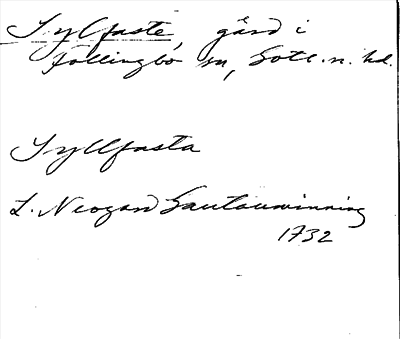 Syllfaste, gård i
Follingbo sn, Gotl. n. hd.
Syllfasta
L. Neogard Gautauminning
1732